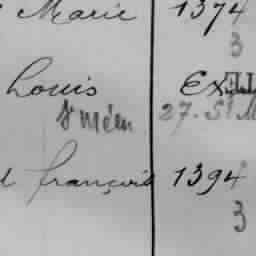 Marie 1374
3
Louis Ex
St Méen 27. St M
françois 1394
3